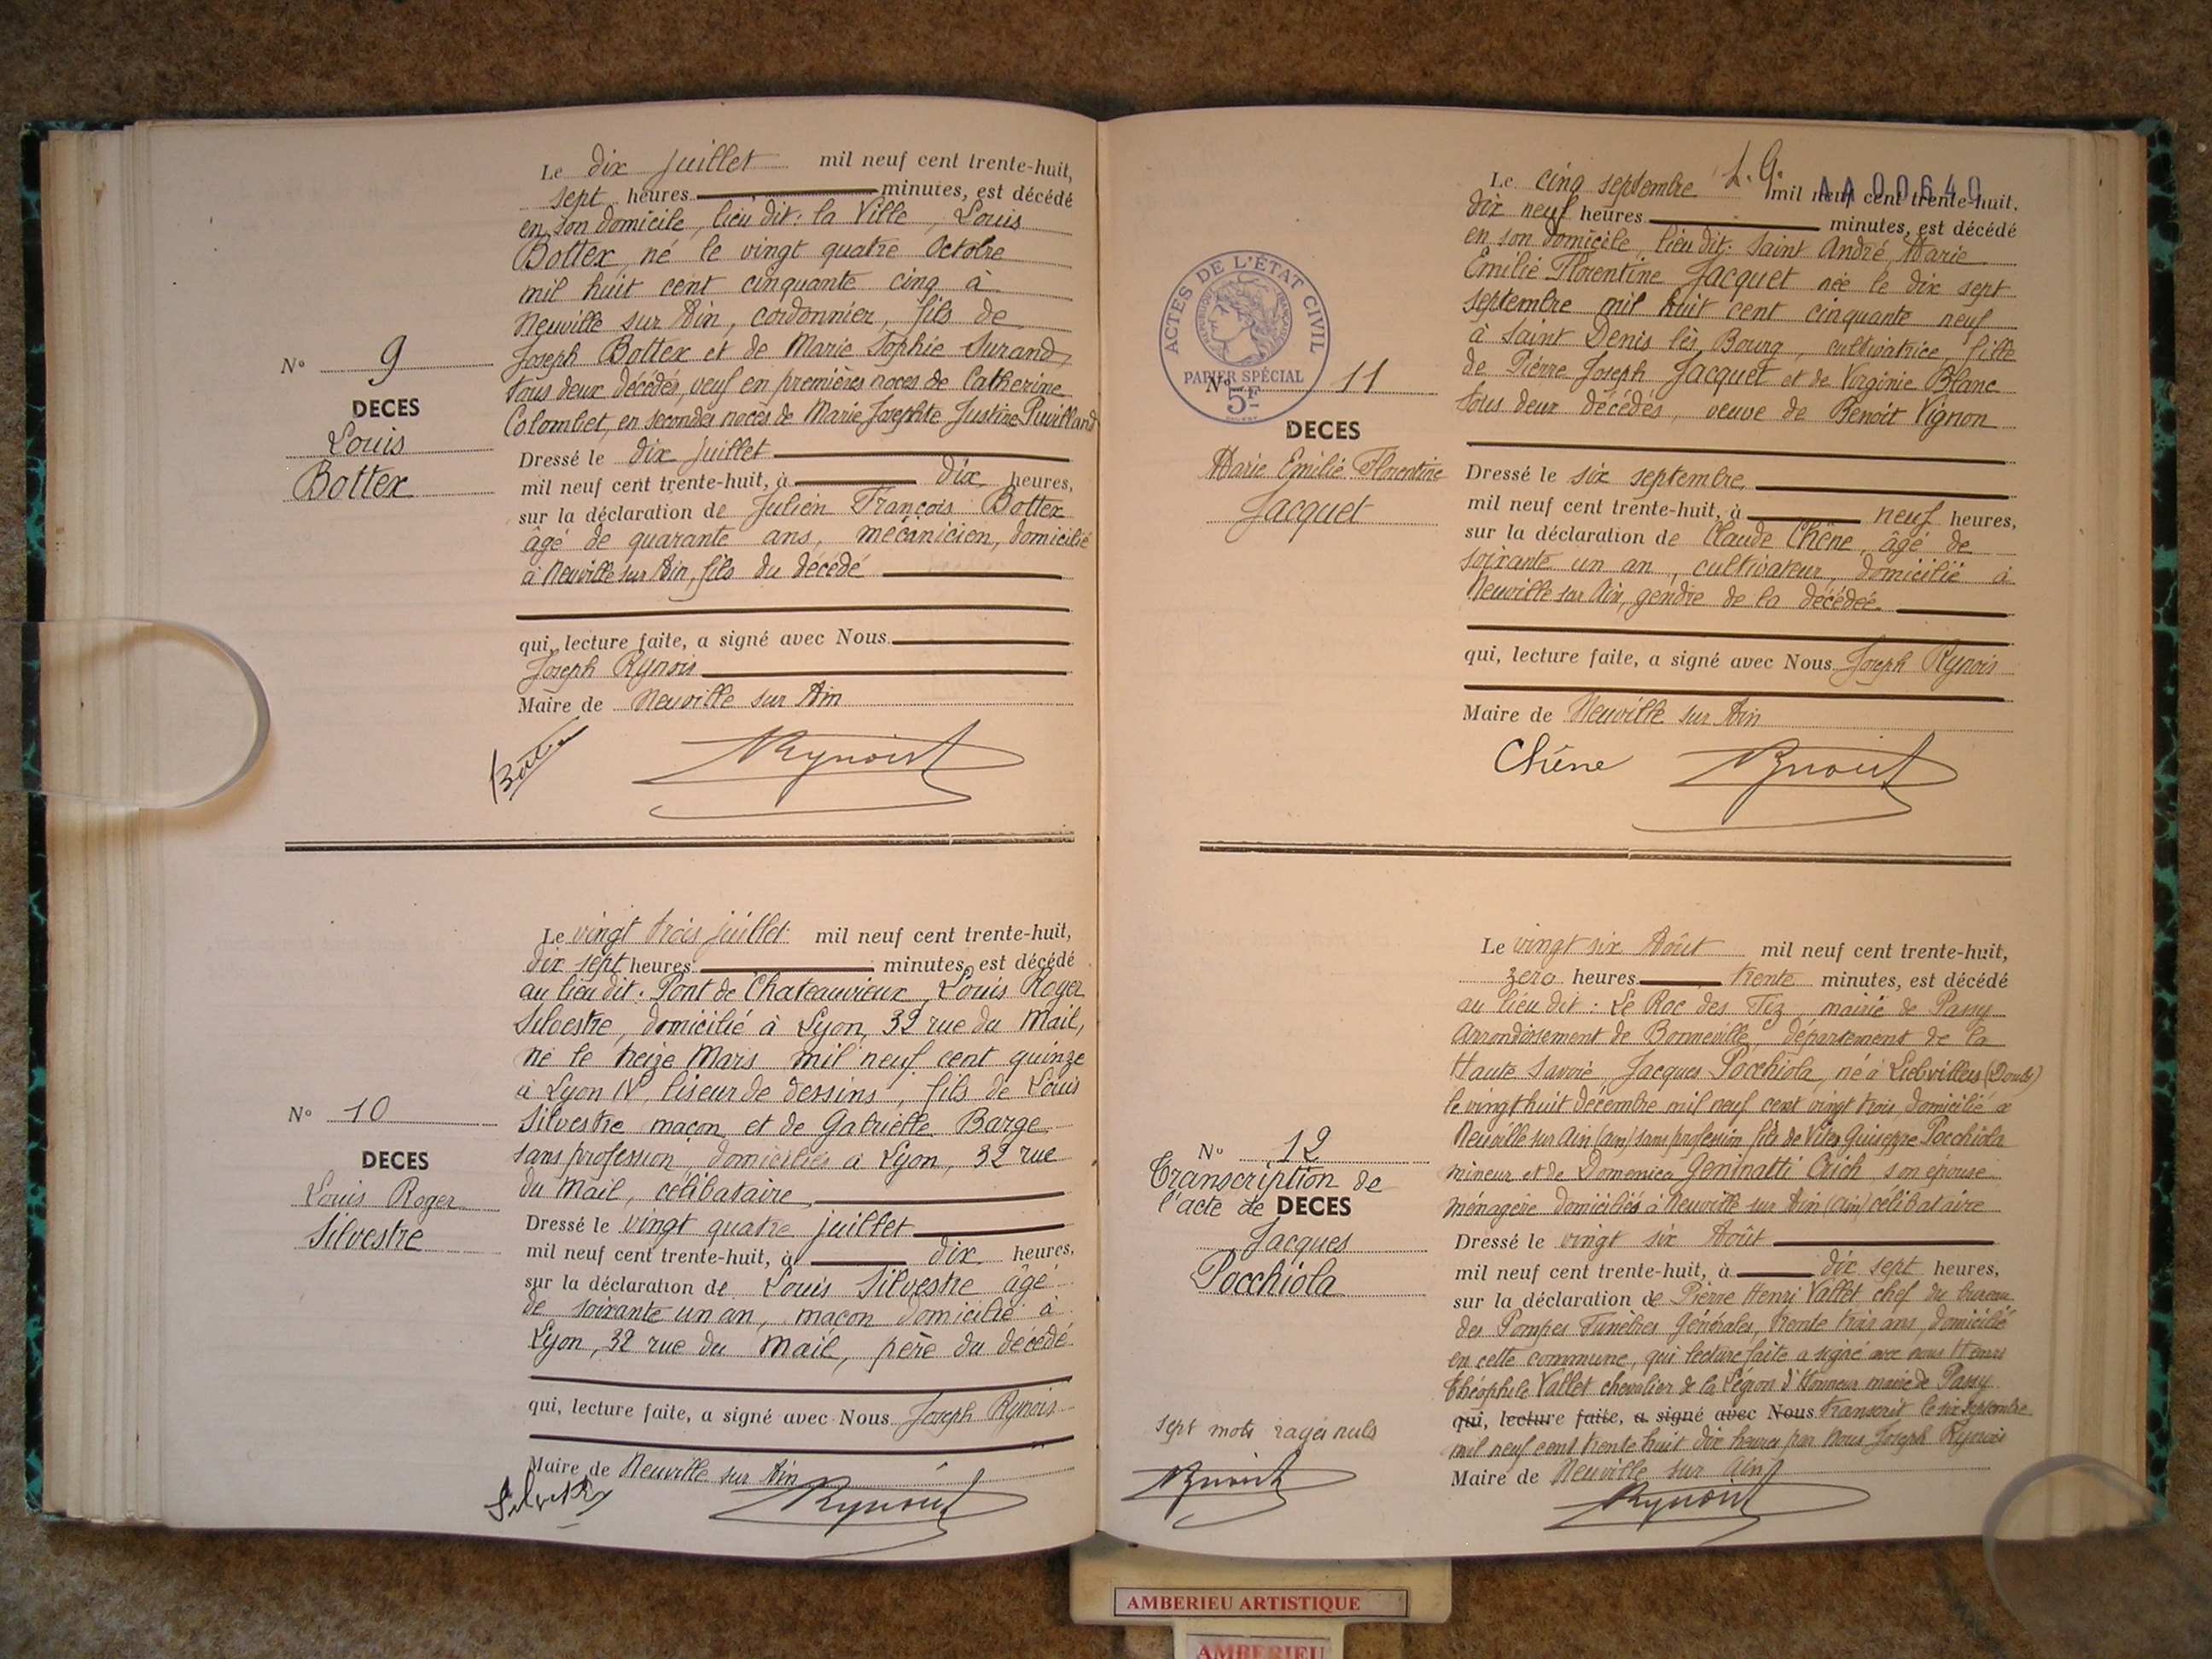 Le dix juillet mil neuf cent trente-huit,
sept heures minutes, est décédé
en son domicile, lieu dit: la Ville, Louis
Bottex, né le vingt quatre Octobre
mil huit cent cinquante cinq à
Neuville sur Ain, cordonnier, fils de
Joseph Bottex et de Marie Sophie Surand,
tous deux décédés, veuf en premières noces de Catherine
Colombet, en secondes noces de Marie Josephte Justine Puvilland
N° 9
DECES
Louis
Bottex
Dressé le dix juillet
mil neuf cent trente-huit, à dix heures,
sur la déclaration de Julien François Bottex
âgé de quarante ans, mécanicien, domicilié
à Neuville sur Ain, fils du décédé
qui, lecture faite, a signé avec Nous
Joseph Rynois
Maire de Neuville sur Ain
Rynois
Le vingt trois juillet mil neuf cent trente-huit,
dix sept heures minutes, est décédé
au lieu dit: Pont de Chateauvieux, Louis Roger
Silvestre, domicilié à Lyon, 32 rue du Mail,
né le treize Mars mil neuf cent quinze
à Lyon IV, liseur de dessins, fils de Louis
Silvestre maçon et de Gabrielle Barge
sans profession, domiciliés à Lyon, 32 rue
du Mail, célibataire
N° 10
DECES
Louis Roger
Silvestre
Dressé le vingt quatre juillet
mil neuf cent trente-huit, à dix heures,
sur la déclaration de Louis Silvestre âgé
de soixante un an, maçon domicilié à
Lyon, 32 rue du Mail, père du décédé
qui, lecture faite, a signé avec Nous Joseph Rynois
Maire de Neuville sur Ain
Silvestre Rynois
L. G. AA00640
Le cinq septembre mil neuf cent trente-huit,
dix neuf heures minutes, est décédé
en son domicile, lieu dit: Saint André, Marie
Emilie Florentine Jacquet née le dix sept
septembre mil huit cent cinquante neuf
à Saint Denis lès Bourg, cultivatrice, fille
de Pierre Joseph Jacquet et de Virginie Blanc
tous deux décédés, veuve de Benoit Vignon
ACTES DE L'ÉTAT CIVIL
RÉPUBLIQUE FRANÇAISE
PAPIER SPÉCIAL
5F
N° 11
DECES
Marie Emilie Florentine
Jacquet
Dressé le six septembre
mil neuf cent trente-huit, à neuf heures,
sur la déclaration de Claude Chêne, âgé de
soixante un an, cultivateur, domicilié à
Neuville sur Ain, gendre de la décédée
qui, lecture faite, a signé avec Nous Joseph Rynois
Maire de Neuville sur Ain
Chêne Rynois
Le vingt six Août mil neuf cent trente-huit,
zero heures trente minutes, est décédé
au lieu dit: Le Roc des Fiz mairie de Passy
arrondissement de Bonneville, département de la
Haute Savoie, Jacques Pocchiola, né à Liebvillers (Doubs)
le vingt huit décembre mil neuf cent vingt trois, domicilié à
Neuville sur Ain (Ain) sans profession fils de Vites Guiseppe Pocchiola
mineur et de Domenica Geninatti Crich, son épouse
ménagère domiciliés à Neuville sur Ain (Ain) célibataire
N° 12
Transcription de
l'acte de DECES
Jacques
Pocchiola
Dressé le vingt six Août
mil neuf cent trente-huit, à dix sept heures,
sur la déclaration de Pierre Henri Vallet chef du bureau
des Pompes Funèbres Générales, trente trois ans, domicilié
en cette commune, qui lecture faite a signé avec nous Henri
Théophile Vallet chevalier de la Légion d'Honneur maire de Passy
qui, lecture faite, a signé avec Nous transcrit le six septembre
mil neuf cent trente huit dix heures par Nous Joseph Rynois
Maire de Neuville sur Ain
sept mots rayés nuls
Rynois
Rynois
AMBERIEU ARTISTIQUE
AMBERIEU